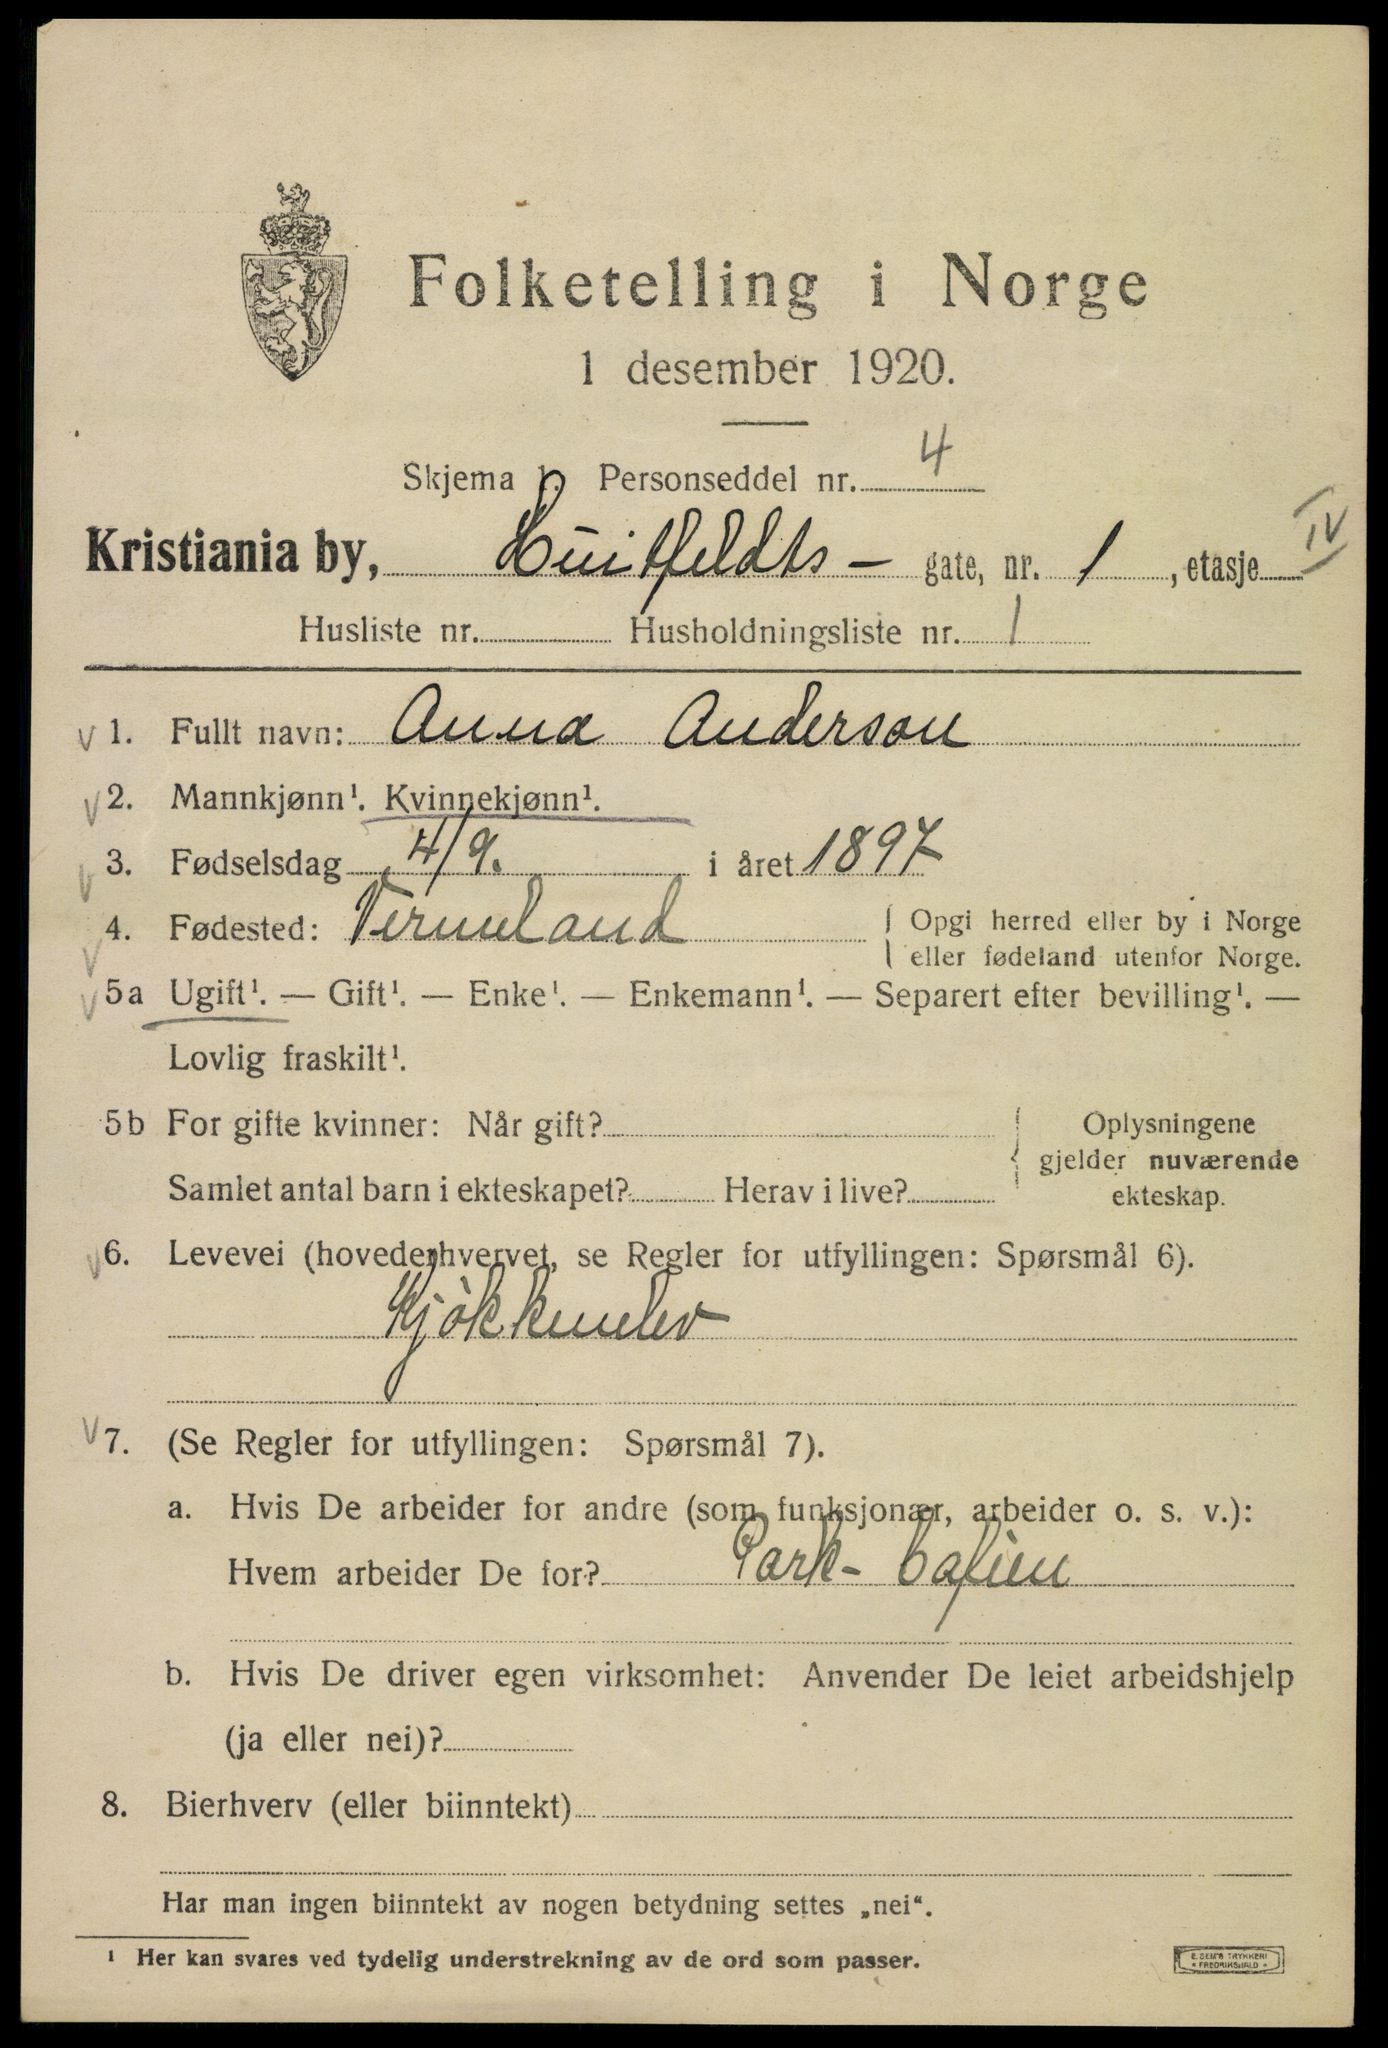 Folketelling i Norge
1 desember 1920.
Skjema 1. Personseddel nr. 4
Kristiania by, Huitfeldts - gate, nr. 1, etasje IV
Husliste nr. Husholdningsliste nr. 1
V 1. Fullt navn: Anna Anderson
V 2. Mannkjønn¹. Kvinnekjønn¹.
V 3. Fødselsdag 4/9. i året 1897
V 4. Fødested: Vermeland { Opgi herred eller by i Norge
eller fødeland utenfor Norge.
V 5a Ugift¹. — Gift¹. — Enke¹. — Enkemann¹. — Separert efter bevilling¹. —
Lovlig fraskilt¹.
5b For gifte kvinner: Når gift?
Samlet antal barn i ekteskapet? Herav i live?
Oplysningene
gjelder nuværende
ekteskap.
V 6. Levevei (hovederhvervet, se Regler for utfyllingen: Spørsmål 6).
Kjökkenelev
V 7. (Se Regler for utfyllingen: Spørsmål 7).
a. Hvis De arbeider for andre (som funksjonær, arbeider o. s. v.):
Hvem arbeider De for? Park-Cafeen
b. Hvis De driver egen virksomhet: Anvender De leiet arbeidshjelp
(ja eller nei)?
8. Bierhverv (eller biinntekt)
Har man ingen biinntekt av nogen betydning settes „nei“.
¹ Her kan svares ved tydelig understrekning av de ord som passer.
E. SEM'S TRYKKERI
• FREDRIKSHALD •